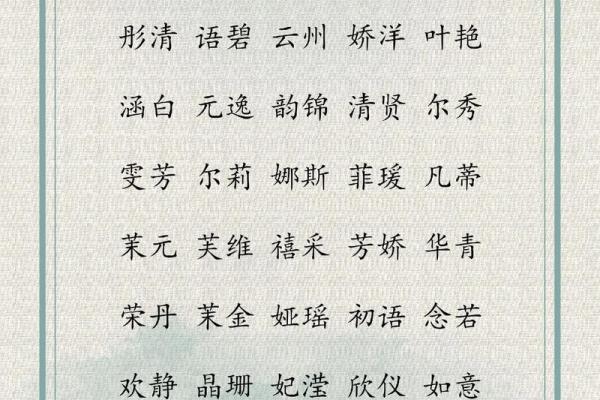 彤清 语碧 云州 娇洋 叶艳
涵白 元逸 韵锦 清贤 尔秀
雯芳 尔莉 娜斯 菲瑗 凡蒂
茉元 芙维 禧采 芳娇 华青
荣丹 茉金 娅瑶 初语 念若
欢静 晶珊 妃滢 欣仪 如意